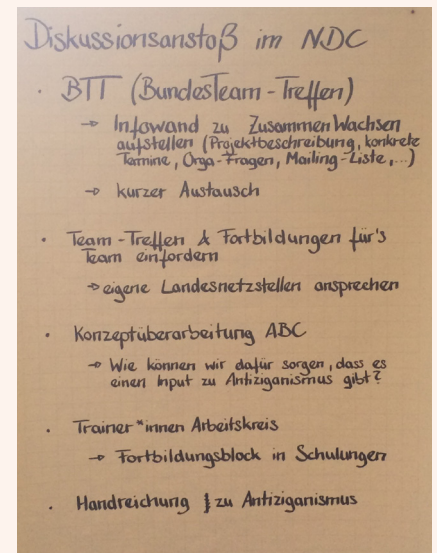 Diskussionsanstoß im NDC
· BTT (BundesTeam-Treffen)
→ Infowand zu ZusammenWachsen
aufstellen (Projektbeschreibung, konkrete
Termine, Orga-Fragen, Mailing-Liste,...)
→ kurzer Austausch
· Team-Treffen & Fortbildungen für's
Team einfordern
→ eigene Landesnetzstellen ansprechen
· Konzeptüberarbeitung ABC
→ Wie können wir dafür sorgen, dass es
einen Input zu Antiziganismus gibt?
· Trainer*innen Arbeitskreis
→ Fortbildungsblock in Schulungen
· Handreichung zu Antiziganismus